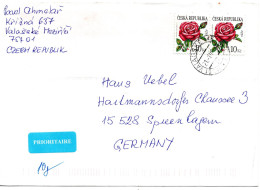 Karel Chmelař
Křižná 657
Valašské Meziříčí
757 01
CZECH REPUBLIK
ČESKÁ REPUBLIKA ČESKÁ REPUBLIKA
10 Kč
Hans Uebel
Hartmannsdorfer Chaussee 3
15 528 Spreenhagen
GERMANY
PRIORITAIRE